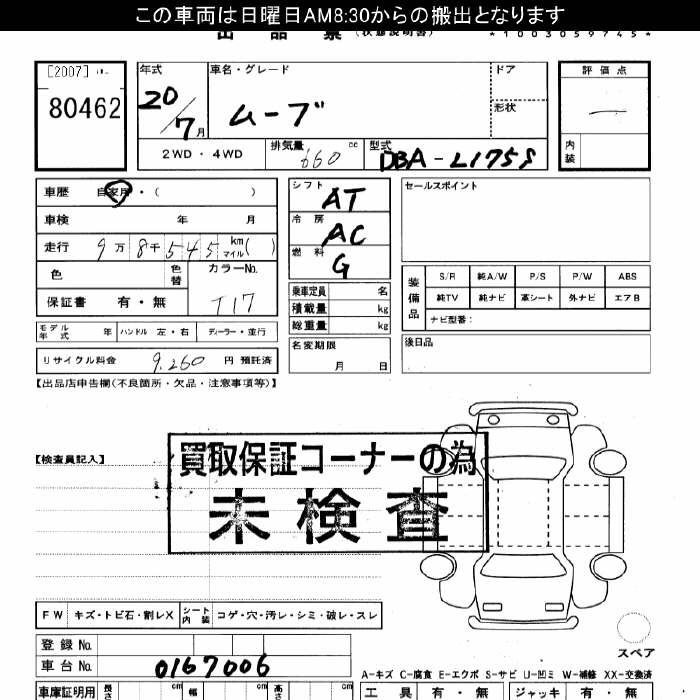 この車両は日曜日AM8:30からの搬出となります
出品票 (状態説明書) *1003059745*
[2007]
80462
年式 車名・グレード ドア 評価点
20/7月 ムーブ 形状 —
2WD・4WD 排気量 660 cc 型式 DBA-L175S 内装
車歴 自家用・( )
シフト AT セールスポイント
車検 年 月
冷房 AC
走行 9万8千545 km マイル( )
燃料 G
色 色替 カラーNo. T17
装備品 S/R 純A/W P/S P/W ABS
純TV 純ナビ 革シート 外ナビ エアB
ナビ型番:
保証書 有・無
乗車定員 名
積載量 kg
総重量 kg
モデル年式 年 ハンドル 左・右 ディーラー・並行
名変期限 月 日
後日品
リサイクル料金 9,260 円 預託済
【出品店申告欄(不良箇所・欠品・注意事項等)】
【検査員記入】
買取保証コーナーの為
未検査
FW キズ・トビ石・割レX シート内装 コゲ・穴・汚レ・シミ・破レ・スレ
スペア
登録No.
車台No. 0167006
A-キズ C-腐食 E-エクボ S-サビ U-凹ミ W-補修 XX-交換済
車庫証明用 長さ cm 幅 cm 高さ cm 工具 有・無 ジャッキ 有・無